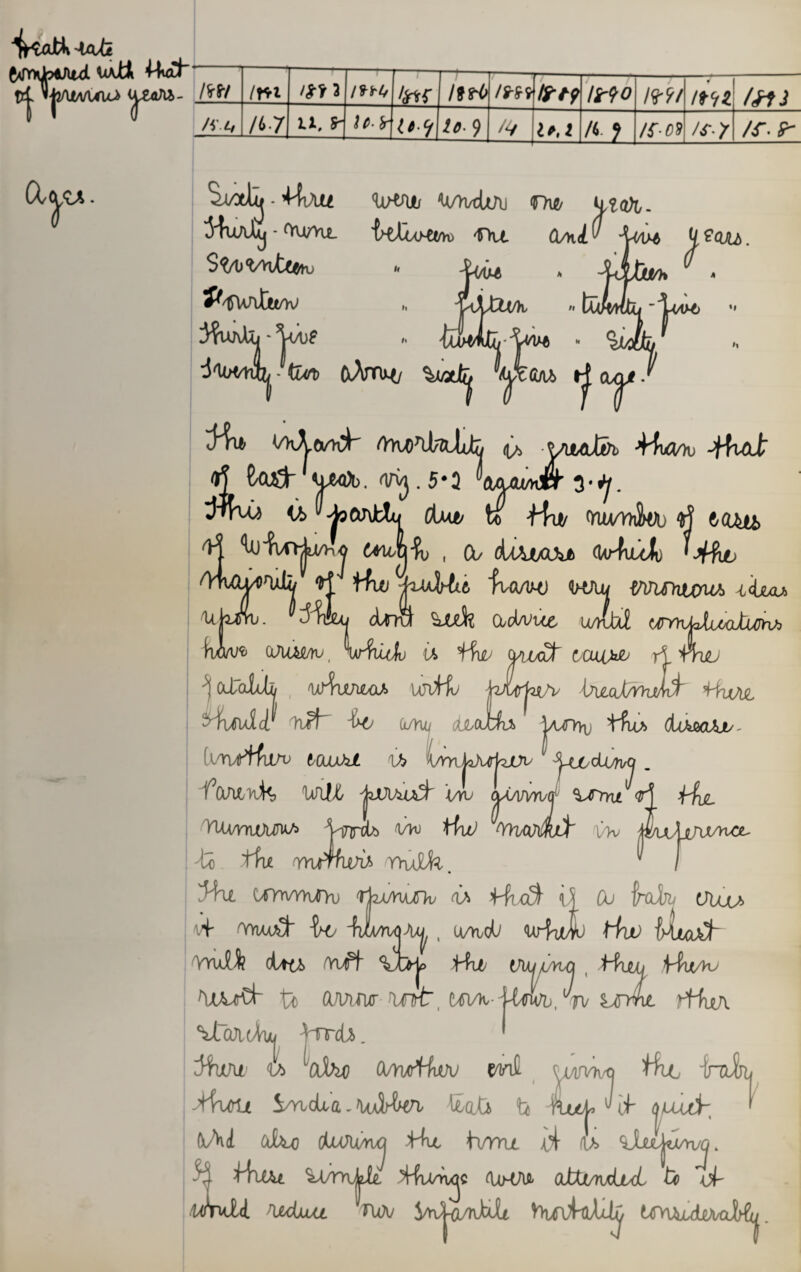 Death-rate
compared with that
of previous years-
1881 1882 1883 1884 1885 1886 1888 1889 1890 1891 1892 1893
15.4 16.7 22.8 20.8 20.9 20.9 14 20.2 16.9 15.09 15.7 15.8
Ages.
Sixty-three were under one year.
Thirty-nine between one and five years.
Seventeen " five " fifteen "
Fourteen " fifteen " twenty-five "
Thirty-five " twenty-five " sixty "
Twenty-two above sixty years of age.
The infant mortality is greater than that
of last year. viz. 5.2 against 3.7.
This is partly due to the number of cases
of Whooping cough, a disease which the
majority of the public have very erroneous ideas
upon. They don't seek advice until complications
have arisen, which is the great cause of the
fatality, whereas with proper treatment there
should not be any deaths from this disease-
Another cause is improper feeding.
Parents will persist in giving some of the
numerous foods in the market in preference
to the mothers milk.
The common opinion is that if a baby cries
it must be hungry, and when the breast
milk does not stop the crying, they then
resort to arrow root, corn-flour, or some other
starchy foods.
There is also another evil giving the baby
those India-rubber teats to keep it quiet,
And also during the time it is sleeping.
If these simple things were attended to it
would reduce our Infantile Mortality considerably.